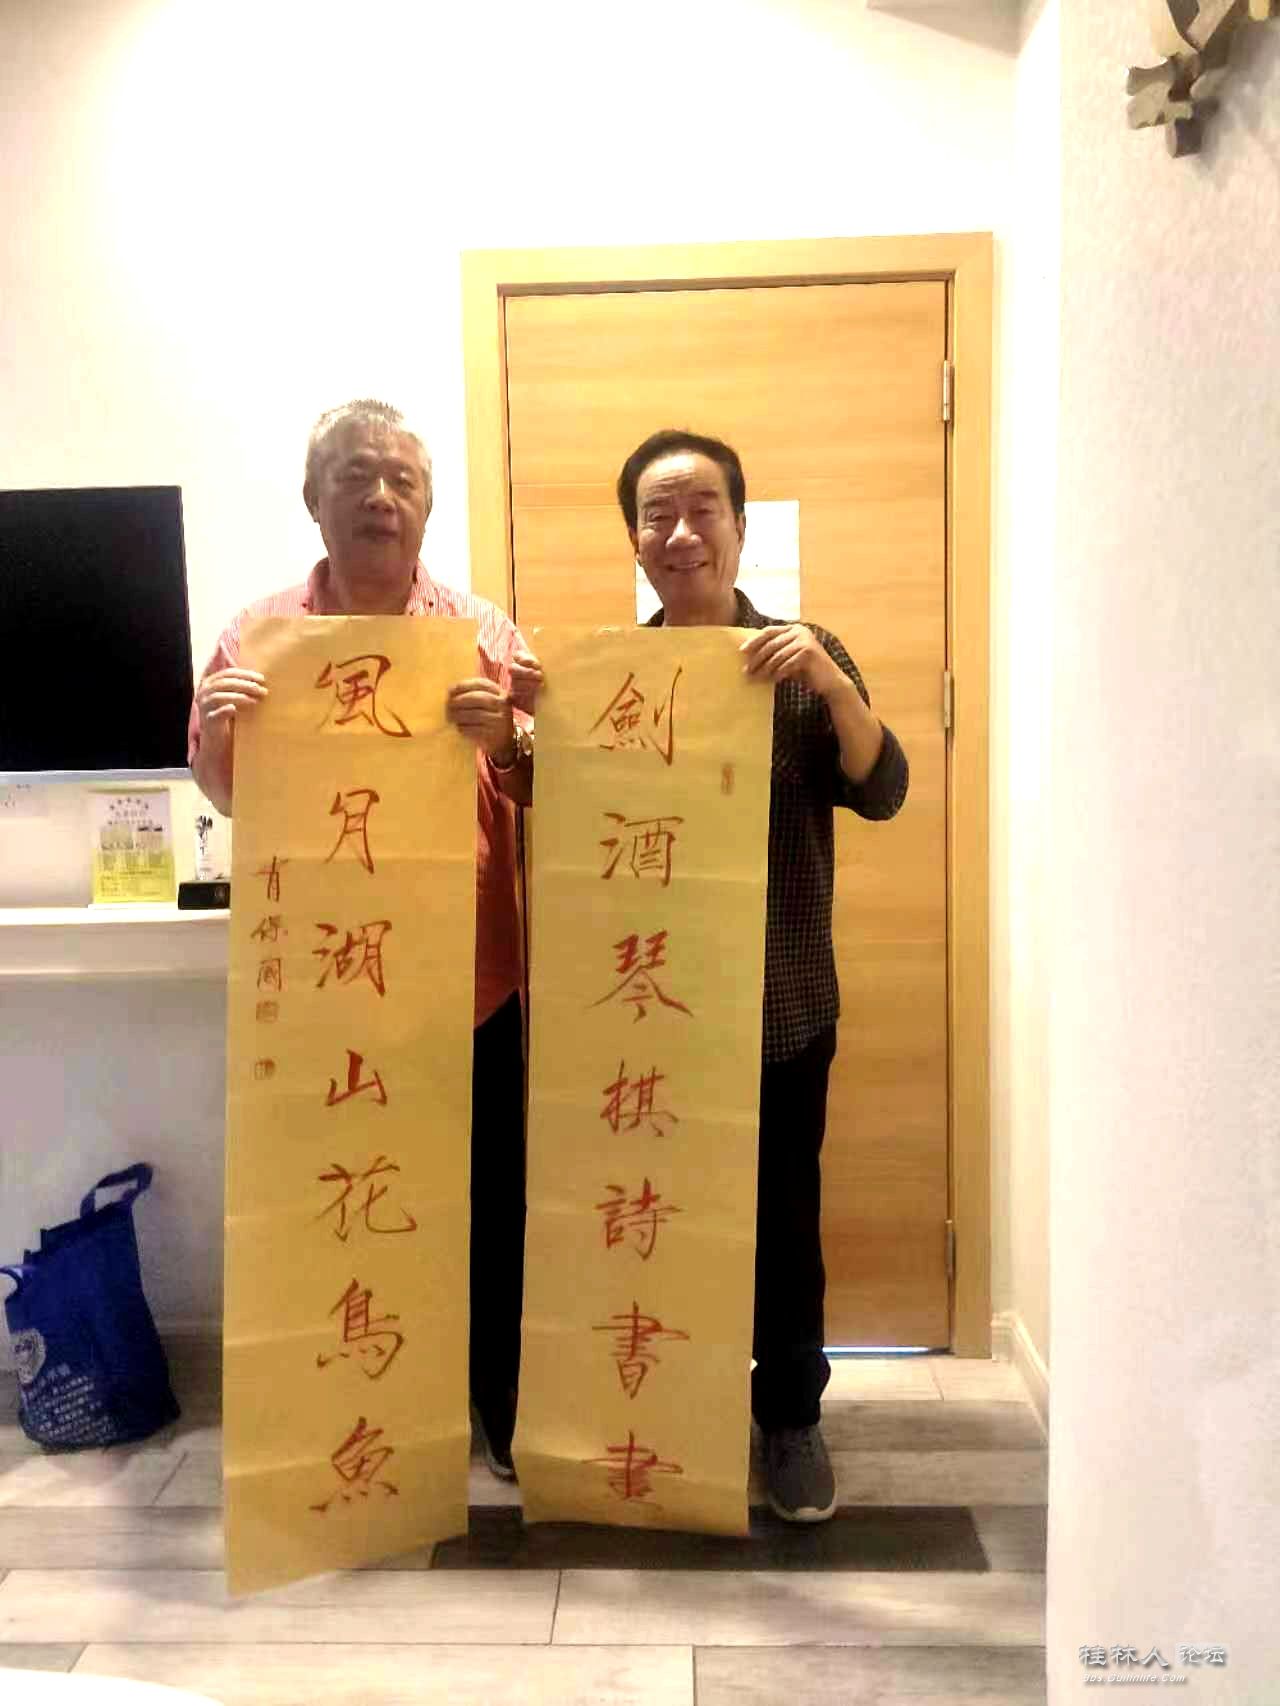 劍酒琴棋詩書畫
風月湖山花鳥魚
肖保國
桂林人论坛
bbs.Guilinlife.Com